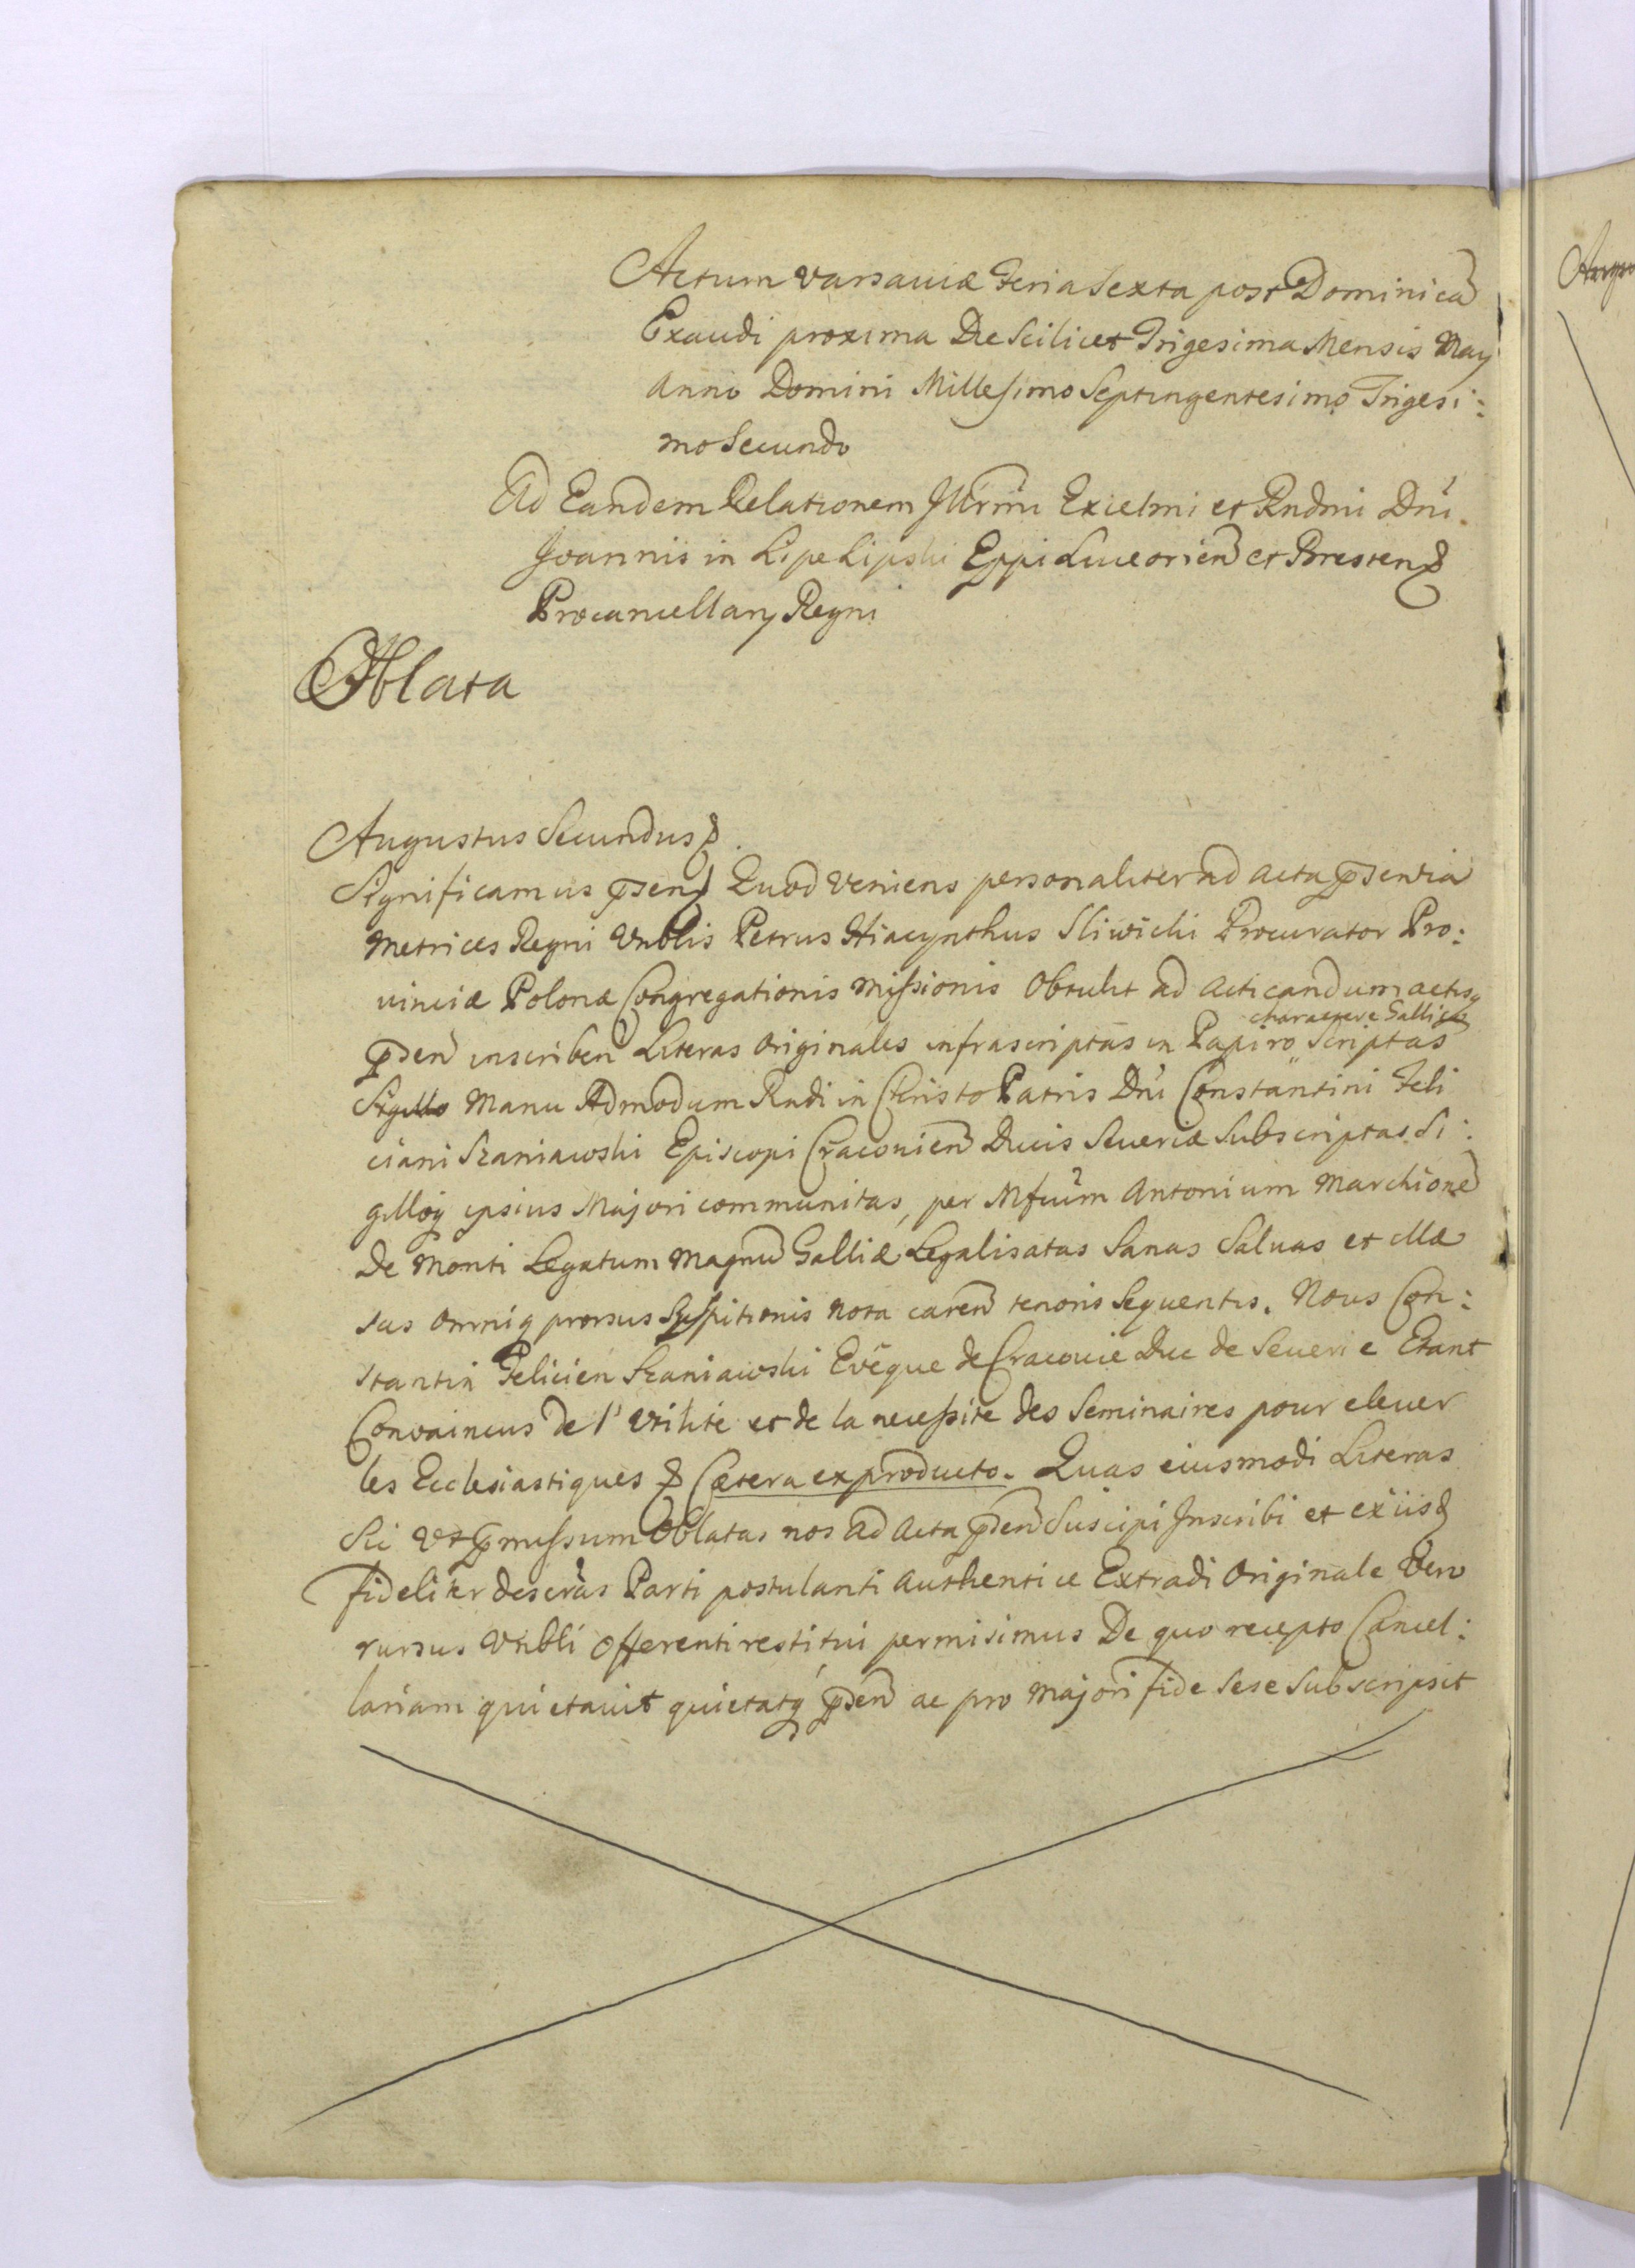 Actum Varsaviæ Feria Sexta post Dominicã
Exaudi proxima Die Scilicet Trigesima Mensis May
Anno Domini Millesimo Septingentesimo Trigesi:
mo Secundo
Ad Eandem Relationem Illrmi Excielmi et Rndmi Dni
Joannis in Lipe Lipski Eppi Luceorien et Bresten
Procancellary Regni
Oblata
Augustus Secundus
Significamus psen Quod veniens personaliter ad Acta psentia
Metrices Regni Vnblis Petrus Hiacynthus Sliwicki Procurator Pro:
uinciæ Polonæ Congregationis Missionis Obtulit ad acticandum actisq
psen inscriben Literas Originales infrascriptas in Papiro charactere Gallico Scriptas
Sigillo Manu Admodum Rndi in Christo Patris Dni Constantini Feli
ciani Szaniawski Episcopi Cracouien Ducis Seueriæ Subscriptas Si:
gilloq ipsius Majori communitas, per Mfcum Antonium Marchionẽ
de Monti Legatum Magnũ Galliæ Legalisatas Sanas Saluas et illæ
sas omniq prorsus Suspitionis nota caren tenoris Sequentis. Nous Con:
stantin Felicien Szaniawski Evêque de Cracouie Duc de Seuerie Etant
Convaincus de l' Vtilite et de la necessite des Seminaires pour eleuer
les Ecclesiastiques & Cætera ex producto. Quas eiusmodi Literas
Sic Vt pmissum Oblatas nos ad Acta psen Suscipi Inscribi et ex iis
fideliter descrãs Parti postulanti authentice Extradi Originale Vero
rursus Vnbli Offerenti restitui permisimus De quo recepto Cancel:
lariam quietauit quietatq psen ac pro majori fide Sese Subscripsit